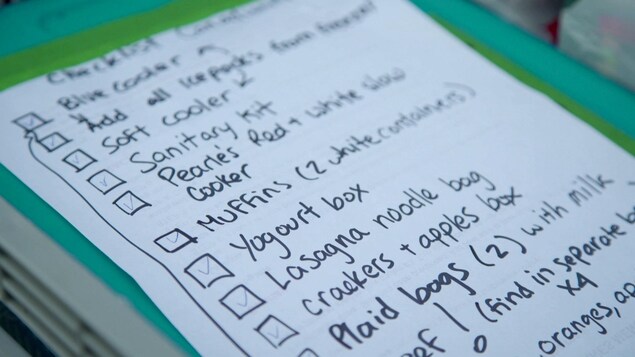 Checklist
Blue cooler
Add all icepacks from freezer!
Soft cooler
Sanitary Kit
Pearle's Red + white slow
cooker
Muffins (2 white containers)
Yogourt box
Lasagna noodle bag
crackers + apples box
Plaid bags (2) with milk
(find in separate
x4
oranges,